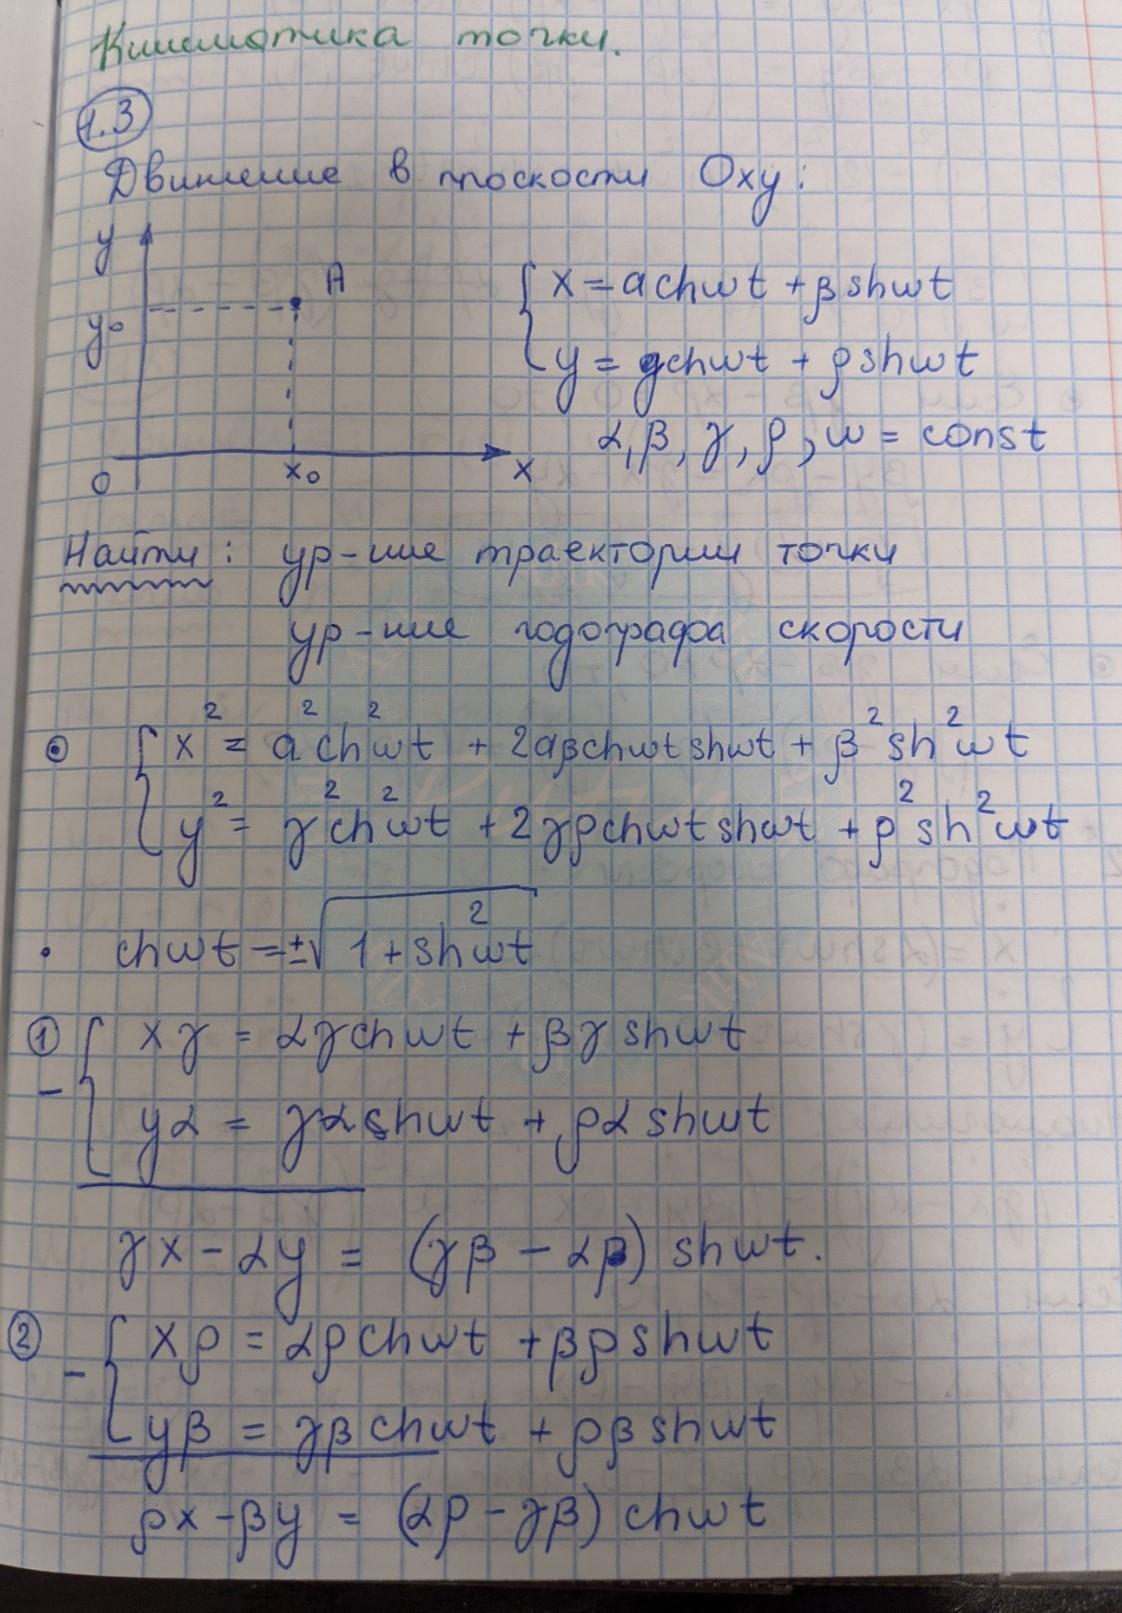 Кинематика точки.
1.3
Движение в плоскости Oxy:
y
A
y₀
0
x₀
x
x = αchωt + βshωt
y = γchωt + ρshωt
α, β, γ, ρ, ω = const
Найти: ур-ние траектории точки
ур-ние годографа скорости
x² = α²ch²ωt + 2αβchωtshωt + β²sh²ωt
y² = γ²ch²ωt + 2γρchωtshωt + ρ²sh²ωt
• chωt = ±√(1 + sh²ωt)
① xγ = αγchωt + βγshωt
− yα = γαshωt + ραshωt
γx − αy = (γβ − αρ) shωt.
② xρ = αρchωt + βρshωt
− yβ = γβchωt + ρβshωt
ρx − βy = (αρ − γβ) chωt